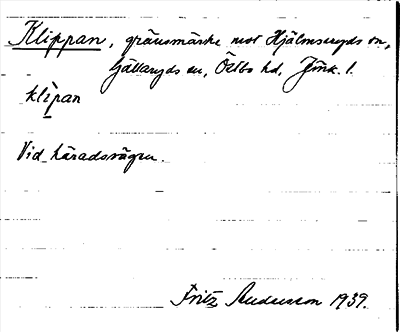 Klippan, gränsmärke mot Hjälmseryds sn,
Gällaryds sn, Östbo hd, Jönk. l.
klìpan
Vid häradsvägen.
Fritz Andersson 1939.